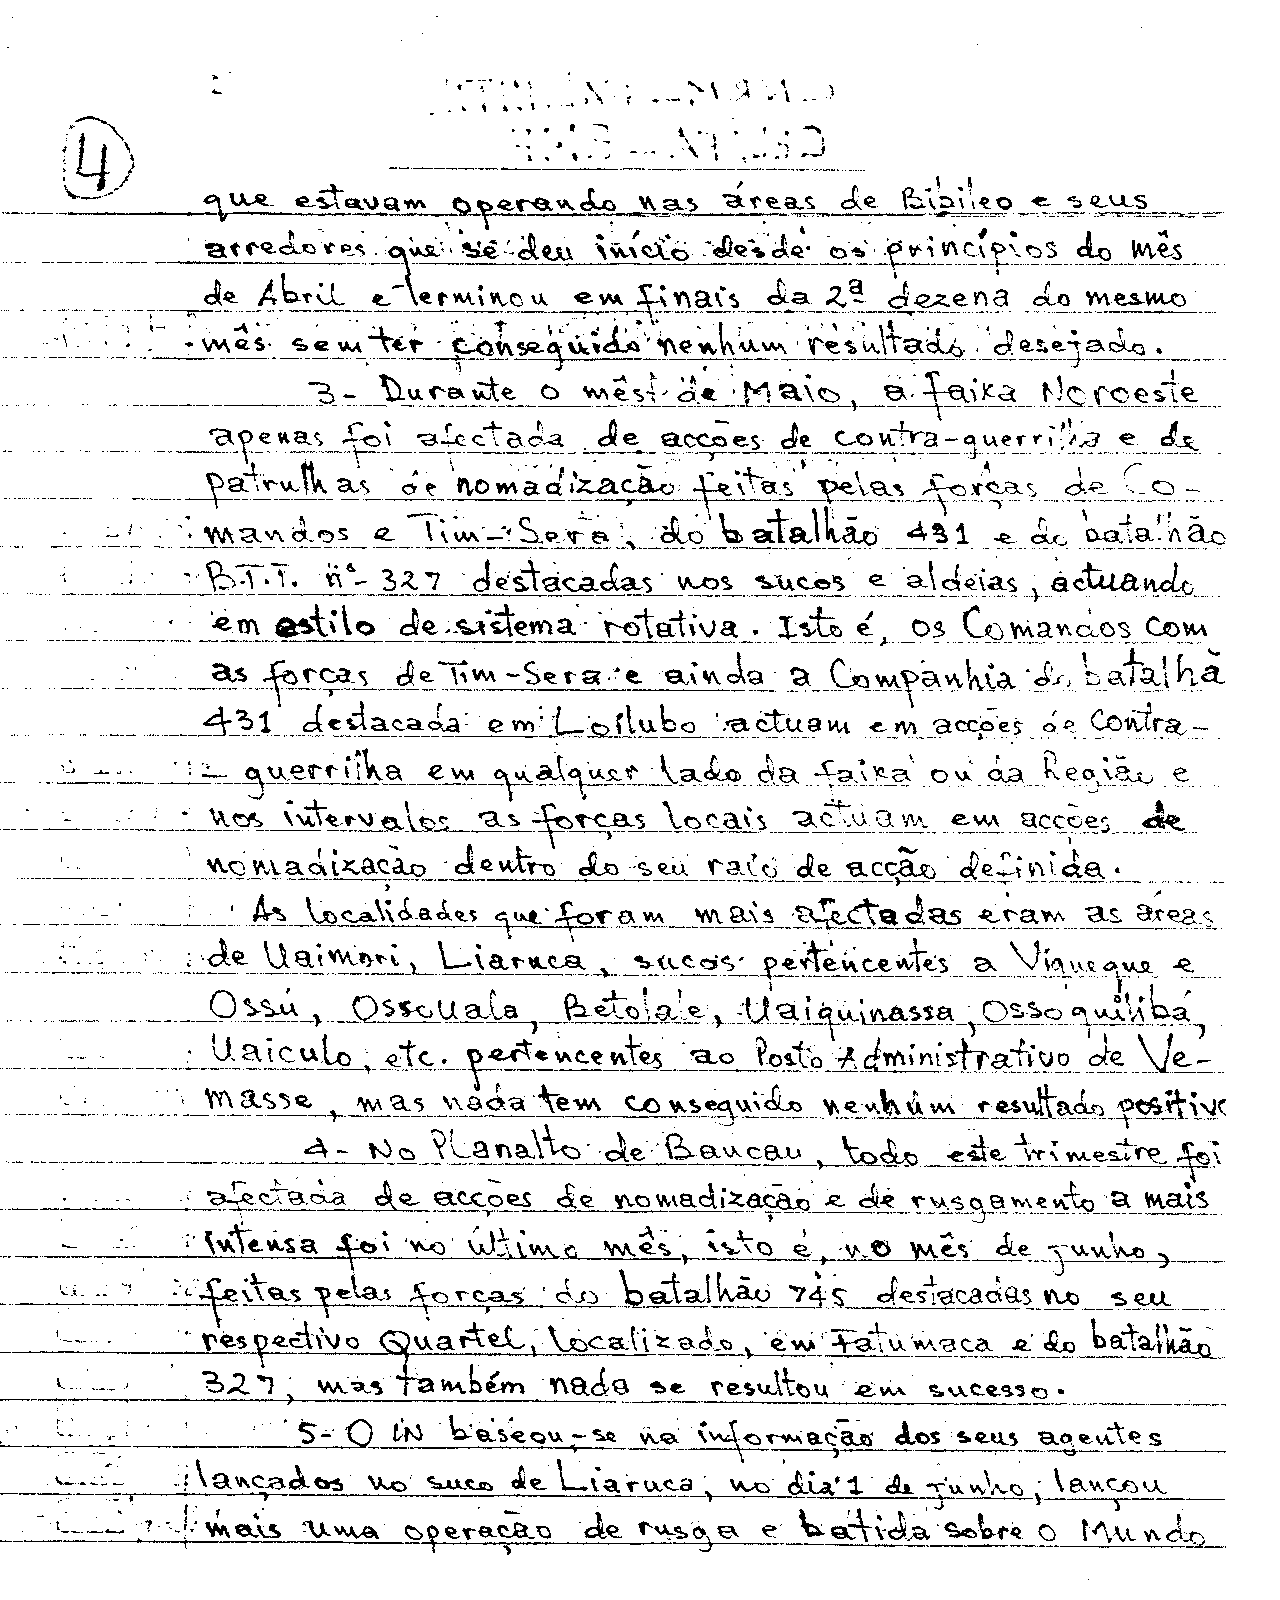 4
que estavam operando nas áreas de Bibileo e seus
arredores que se deu início desde os princípios do mês
de Abril e terminou em finais da 2ª dezena do mesmo
mês sem ter conseguido nenhum resultado desejado.
3- Durante o mês de Maio, a faixa Noroeste
apenas foi afectada de acções de contra-guerrilha e de
patrulhas de nomadização feitas pelas forças de Co-
mandos e Tim-Sera, do batalhão 431 e do batalhão
B.T.T. nº 327 destacadas nos sucos e aldeias, actuando
em estilo de sistema rotativa. Isto é, os Comandos com
as forças de Tim-Sera e ainda a Companhia do batalhã
431 destacada em Loilubo actuam em acções de contra-
guerrilha em qualquer lado da faixa ou da Região e
nos intervalos as forças locais actuam em acções de
nomadização dentro do seu raio de acção definida.
As localidades que foram mais afectadas eram as áreas
de Uaimori, Liaruca, sucos pertencentes a Viqueque e
Ossú, Ossouala, Betolale, Uaiquinassa, Ossoquiliba,
Uaiculo, etc. pertencentes ao Posto Administrativo de Ve-
masse, mas nada tem conseguido nenhum resultado positivo
4- No Planalto de Baucau, todo este trimestre foi
afectada de acções de nomadização e de rusgamento a mais
intensa foi no último mês, isto é, no mês de junho,
feitas pelas forças do batalhão 745 destacadas no seu
respectivo Quartel, localizado, em Fatumaca e do batalhão
327, mas também nada se resultou em sucesso.
5- O IN baseou-se na informação dos seus agentes
lançados no suco de Liaruca, no dia 1 de junho, lançou
mais uma operação de rusga e batida sobre o Mundo